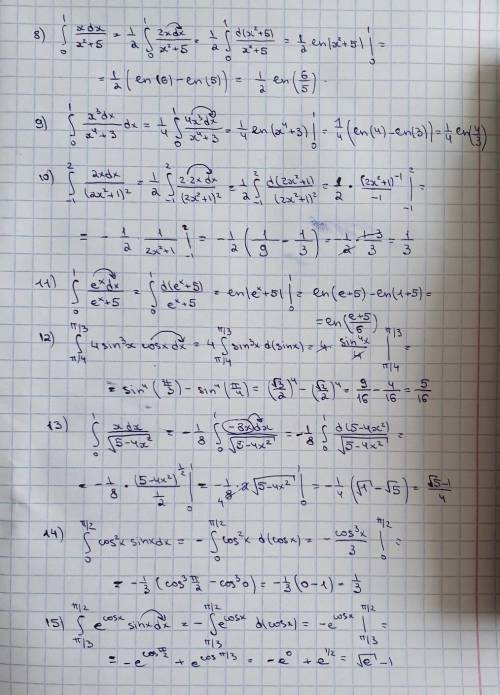 8) ∫₀¹ xdx/(x²+5) = 1/2 ∫₀¹ 2xdx/(x²+5) = 1/2 ∫₀¹ d(x²+5)/(x²+5) = 1/2 ln|x²+5| |₀¹ =
= 1/2 (ln(6) - ln(5)) = 1/2 ln(6/5).
9) ∫₀¹ x³dx/(x⁴+3) dx = 1/4 ∫₀¹ 4x³dx/(x⁴+3) = 1/4 ln(x⁴+3) |₀¹ = 1/4 (ln(4) - ln(3)) = 1/4 ln(4/3)
10) ∫₋₁² 2xdx/(2x²+1)² = 1/2 ∫₋₁² 2·2xdx/(2x²+1)² = 1/2 ∫₋₁² d(2x²+1)/(2x²+1)² = 1/2 · (2x²+1)⁻¹/-1 |₋₁² =
= - 1/2 · 1/(2x²+1) |₋₁² = -1/2 (1/9 - 1/3) = = 1/3
11) ∫₀¹ eˣdx/(eˣ+5) = ∫₀¹ d(eˣ+5)/(eˣ+5) = ln|eˣ+5| |₀¹ = ln(e+5) - ln(1+5) =
= ln((e+5)/6)
12) ∫_{π/4}^{π/3} 4sin³x cosxdx = 4 ∫_{π/4}^{π/3} sin³x d(sinx) = 4 · sin⁴x/4 |_{π/4}^{π/3} =
= sin⁴(π/3) - sin⁴(π/4) = (√3/2)⁴ - (√2/2)⁴ = 9/16 - 4/16 = 5/16
13) ∫₀¹ xdx/√(5-4x²) = -1/8 ∫₀¹ -8xdx/√(5-4x²) = -1/8 ∫₀¹ d(5-4x²)/√(5-4x²) =
= -1/8 · (5-4x²)^{1/2}/(1/2) |₀¹ = -1/8 · 2√(5-4x²) |₀¹ = -1/4 (√1 - √5) = (√5-1)/4
14) ∫₀^{π/2} cos²x sinxdx = - ∫₀^{π/2} cos²x d(cosx) = - cos³x/3 |₀^{π/2} =
= -1/3 (cos³ π/2 - cos³0) = -1/3 (0-1) = 1/3
15) ∫_{π/3}^{π/2} e^{cosx} sinxdx = - ∫_{π/3}^{π/2} e^{cosx} d(cosx) = -e^{cosx} |_{π/3}^{π/2} =
= -e^{cos π/2} + e^{cos π/3} = -e⁰ + e^{1/2} = √e - 1